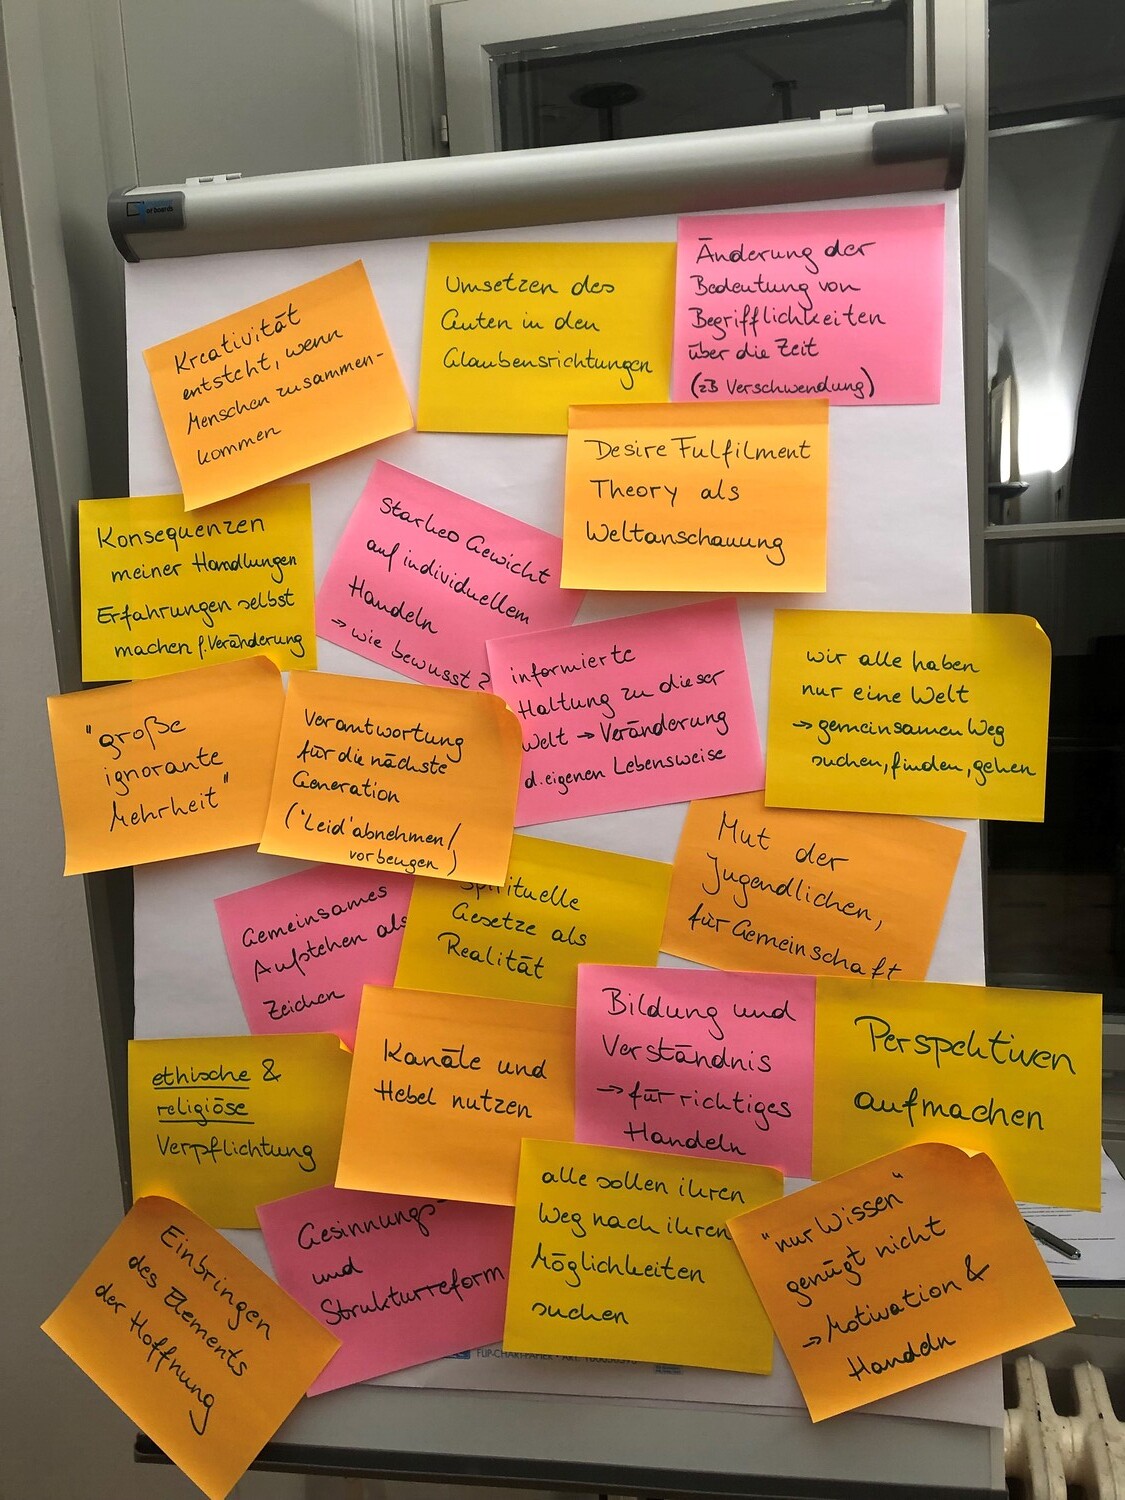 of boards
Kreativität
entsteht, wenn
Menschen zusammen-
kommen
Umsetzen des
Guten in den
Glaubensrichtungen
Änderung der
Bedeutung von
Begrifflichkeiten
über die Zeit
(zB Verschwendung)
Desire Fulfilment
Theory als
Weltanschauung
Konsequenzen
meiner Handlungen
Erfahrungen selbst
machen f. Veränderung
Starkes Gewicht
auf individuellem
Handeln
→ wie bewusst?
informierte
Haltung zu dieser
Welt → Veränderung
d. eigenen Lebensweise
wir alle haben
nur eine Welt
→ gemeinsamen Weg
suchen, finden, gehen
"große
ignorante
Mehrheit"
Verantwortung
für die nächste
Generation
('Leid' abnehmen/
vorbeugen)
Mut der
Jugendlichen,
für Gemeinschaft
Gemeinsames
Aufstehen als
Zeichen
Spirituelle
Gesetze als
Realität
Bildung und
Verständnis
→ für richtiges
Handeln
Perspektiven
aufmachen
ethische &
religiöse
Verpflichtung
Kanäle und
Hebel nutzen
Einbringen
des Elements
der Hoffnung
Gesinnungs-
und
Strukturreform
alle sollen ihren
Weg nach ihren
Möglichkeiten
suchen
"nur Wissen"
genügt nicht
→ Motivation &
Handeln
FLIP-CHART-PAPIER